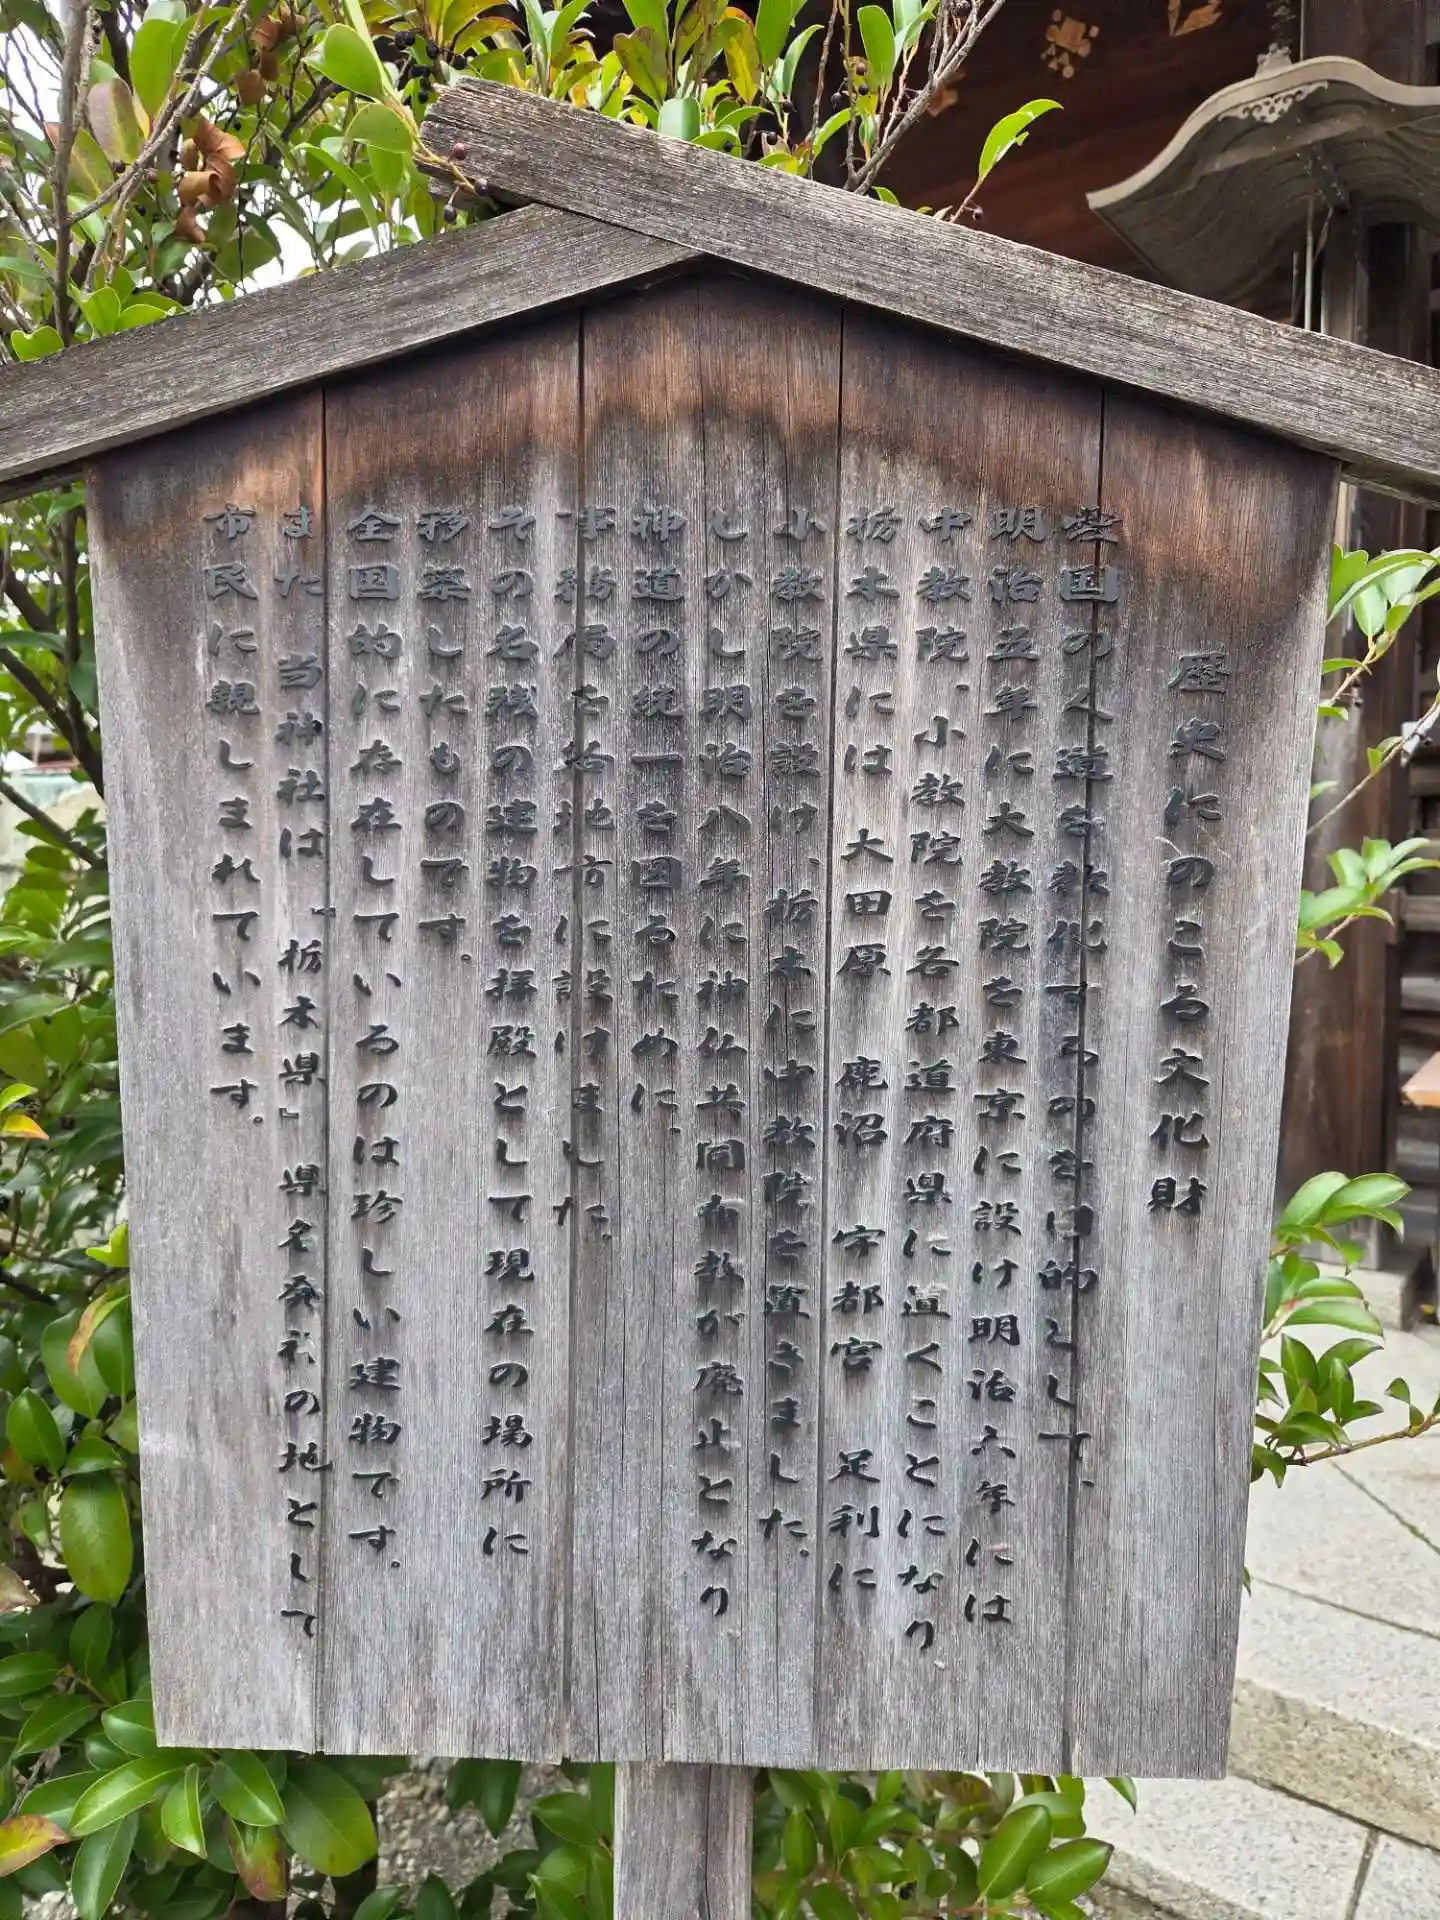 歴史にのこる文化財
全国の人道を教化するのを目的として、
明治五年に大教院を東京に設け明治六年には
中教院、小教院を各都道府県に道くことになり、
栃木県には 大田原 鹿沼 宇都宮 足利に
小教院を設け、栃木に中教院を道きました。
しかし明治八年に神仏共同布教が廃止となり
神道の統一を図るために、
事務局を各地方に設けました。
その名残の建物を拝殿として現在の場所に
移築したものです。
全国的に存在しているのは珍しい建物です。
また当神社は『栃木県』県名発祥の地として
市民に親しまれています。